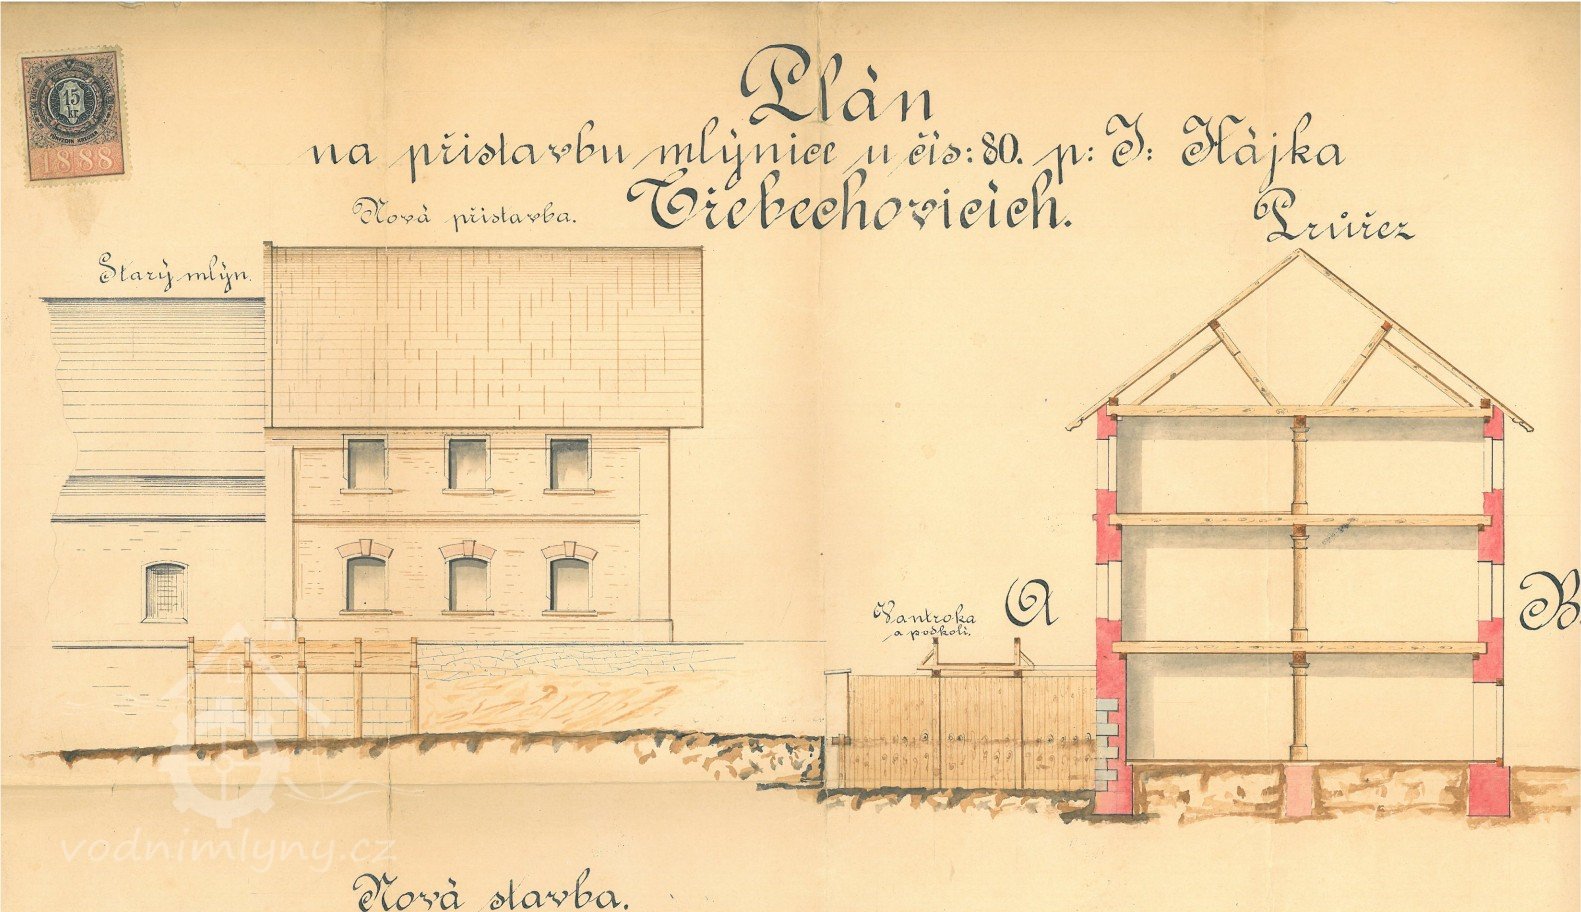 Plán
na přistavbu mlýnice u čís: 80. p: J: Hájka
Třebechovicích.
15
kr
1888
Nová přistavba.
Starý mlýn.
Průřez
Vantroka
a podkolí.
A
B.
Nová stavba.
vodnimlyny.cz